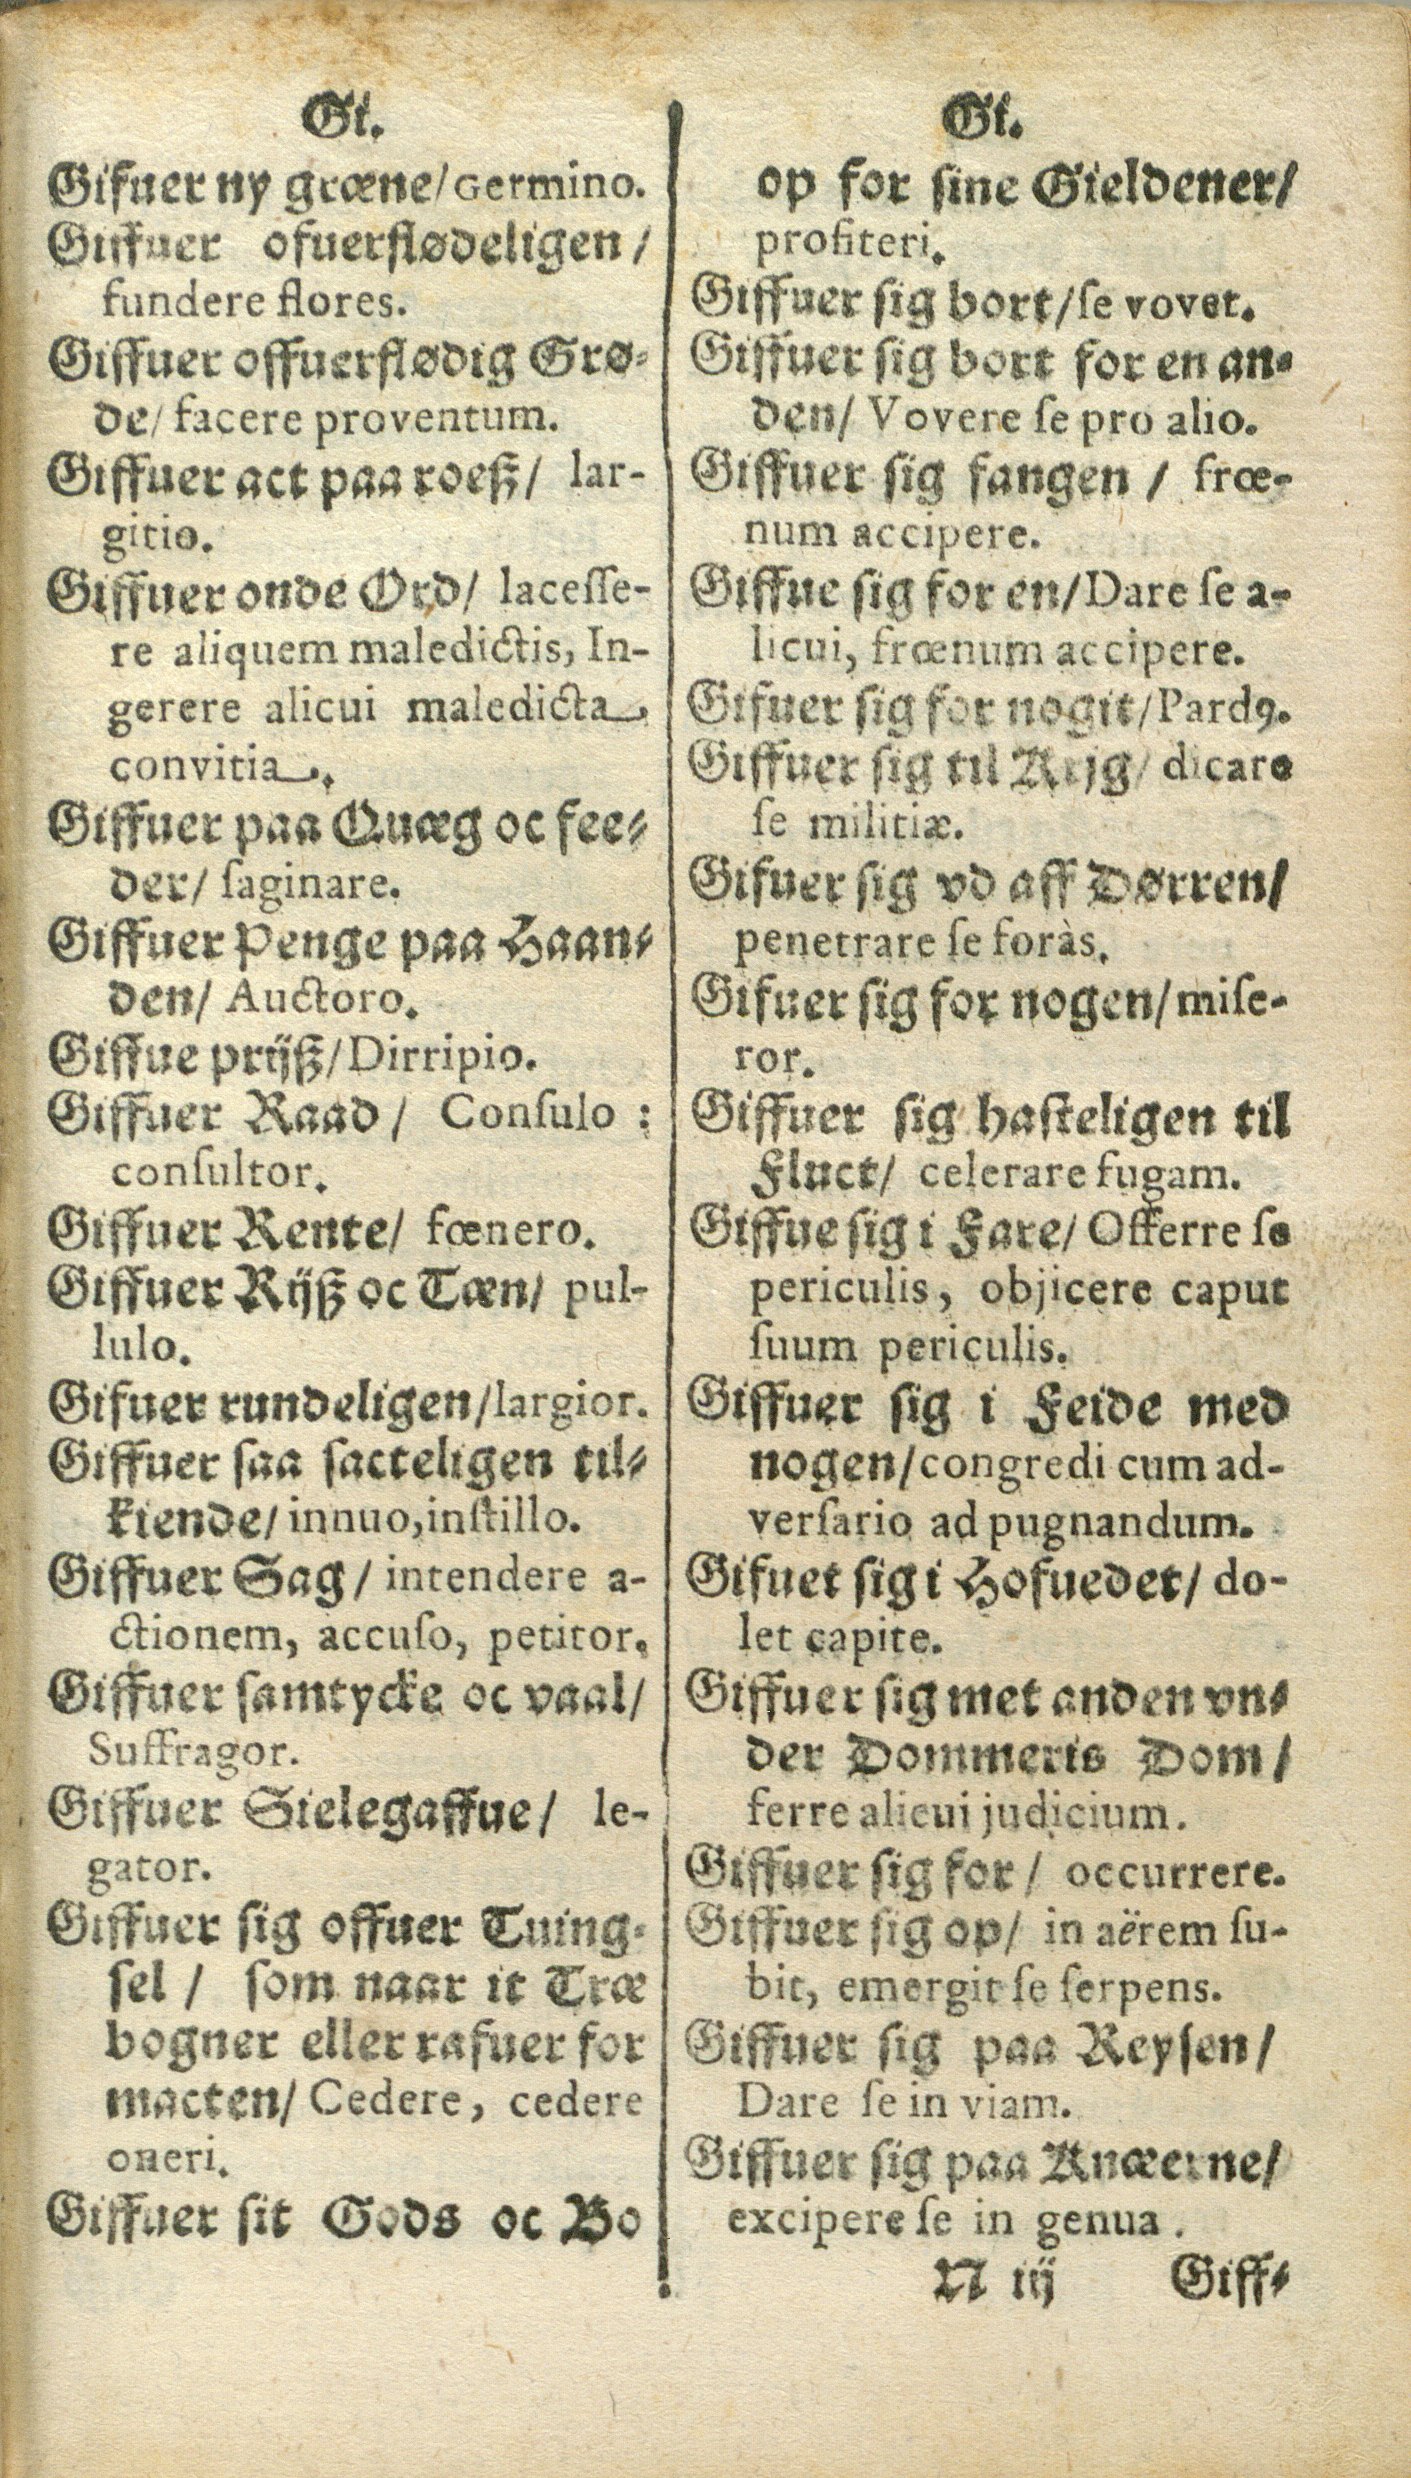 Gi.
Gifuer ny græne/Germino.
Giffuer ofuerflødeligen/
fundere flores.
Giffuer offuerflødig Grø-
de/ facere proventum.
Giffuer act paa roeß/ lar-
gitio.
Giffuer onde Ord/ lacesse-
re aliquem maledictis, In-
gerere alicui maledicta,
convitia.
Giffuer paa Quæg oc fee-
der/ saginare.
Giffuer Penge paa Haan-
den/ Auctoro.
Giffue prijß/Dirripio.
Giffuer Raad/ Consulo:
consultor.
Giffuer Rente/ fœnero.
Giffuer Rijß oc Tæn/ pul-
lulo.
Gifuer rundeligen/largior.
Giffuer saa sacteligen til-
kiende/ innuo,instillo.
Giffuer Sag/ intendere a-
ctionem, accuso, petitor.
Giffuer samtycke oc vaal/
Suffragor.
Giffuer Sielegaffue/ le-
gator.
Giffuer sig offuer Tuing-
sel/ som naar it Træ
bogner eller rafuer for
macten/ Cedere, cedere
oneri.
Giffuer sit Gods oc Bo
Gi.
op for sine Gieldener/
profiteri.
Giffuer sig bort/se vovet.
Giffuer sig bort for en an-
den/ Vovere se pro alio.
Giffuer sig fangen/ frœ-
num accipere.
Giffue sig for en/Dare se a-
licui, frœnum accipere.
Gifuer sig for nogit/Pardꝰ.
Giffuer sig til Krijg/ dicare
se militiæ.
Gifuer sig vd aff Dørren/
penetrare se foràs.
Gifuer sig for nogen/mise-
ror.
Giffuer sig hasteligen til
Fluct/ celerare fugam.
Giffue sig i Fare/ Offerre se
periculis, objicere caput
suum periculis.
Giffuer sig i Feide med
nogen/congredi cum ad-
versario ad pugnandum.
Gifuet sig i Hofuedet/ do-
let capite.
Giffuer sig met anden vn-
der Dommeris Dom/
ferre alicui judicium.
Giffuer sig for/ occurrere.
Giffuer sig op/ in aërem su-
bit, emergit se serpens.
Giffuer sig paa Reysen/
Dare se in viam.
Giffuer sig paa Knæerne/
excipere se in genua.
N iij Giff-